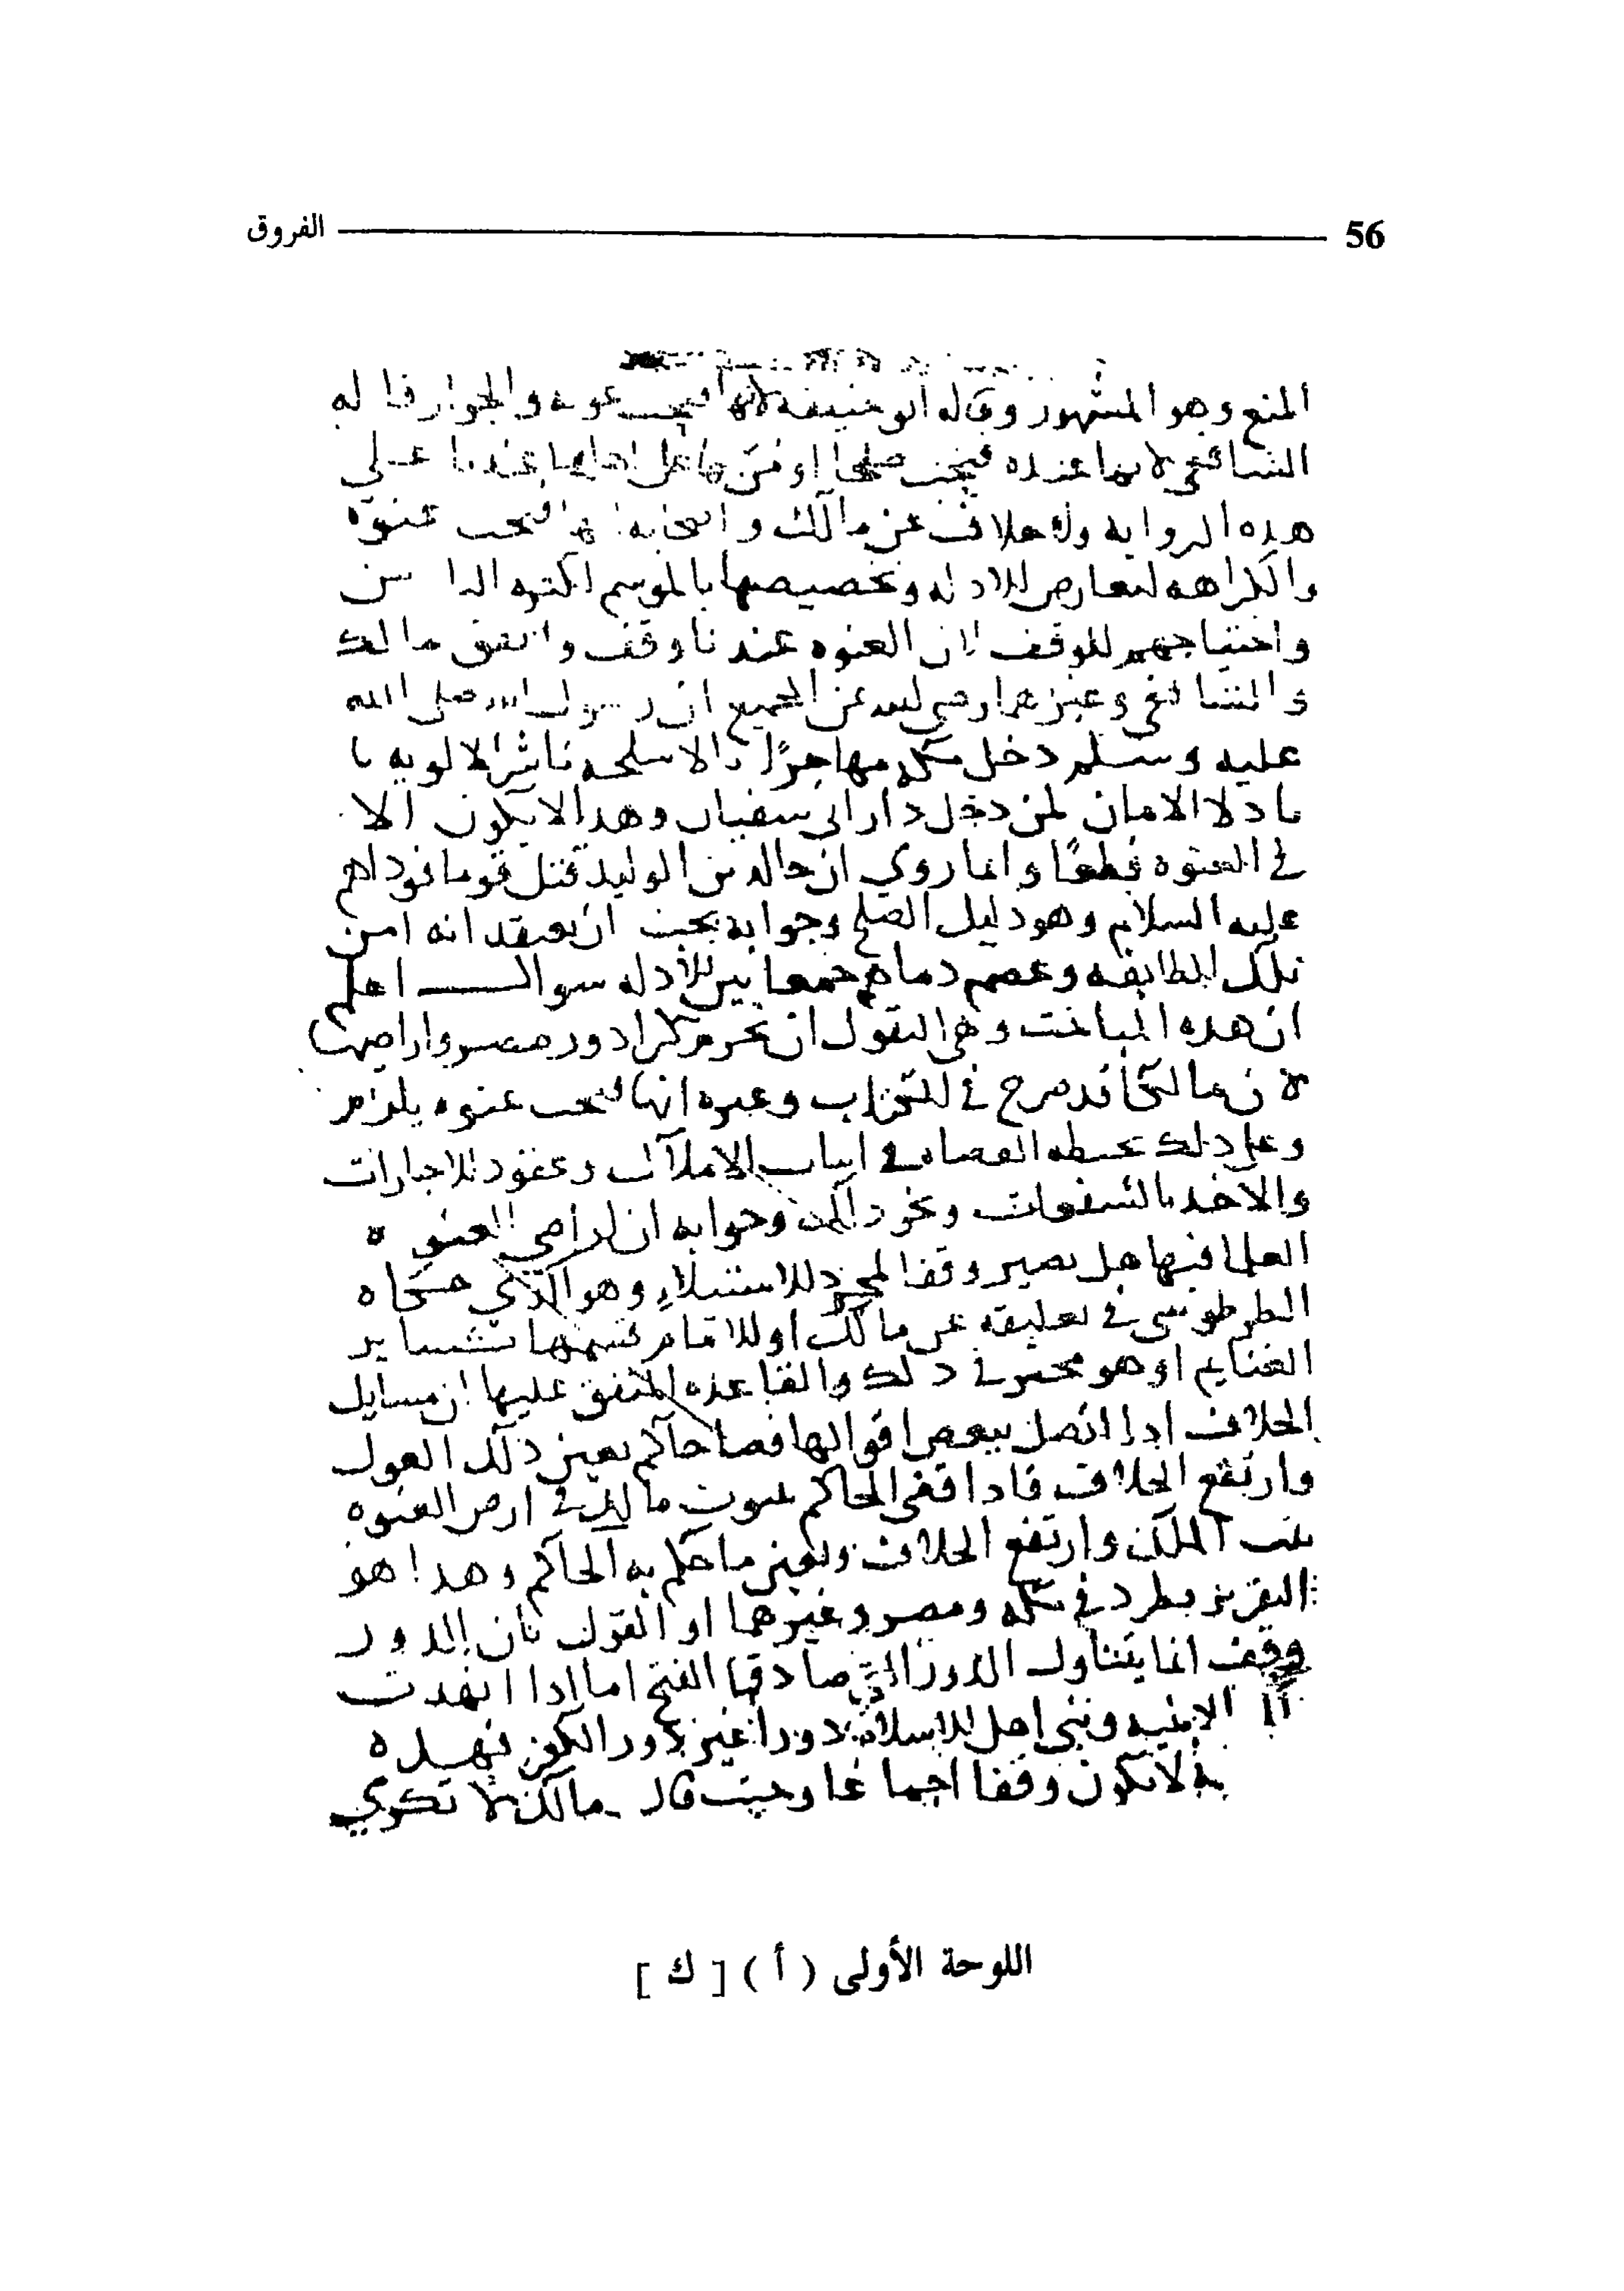 56 الفروق
المنع وهو المشهور وقاله ابو حنيفه لانها فتحت عنوه والجواز قاله
الشافعي لانها عنده فتحت صلحا او من بها على اهلها عندنا على
هذه الروايه ولا خلاف عن مالك واصحابه انها فتحت عنوة
والكراهه لتعارض الادله وتخصيصها بالموسم لكثره الناس
واحتياجهم للوقف لان العنوه عندنا وقف واتفق مالك
والشافعي وغيرهما رضي الله عن الجميع ان رسول الله صلى الله
عليه وسلم دخل مكه مجاهرًا بالاسلحه ناشرًا الالويه
باذلا الامان لمن دخل دار ابي سفيان وهذا لا يكون الا
في العنوه قطعًا وانما روي ان خالد بن الوليد قتل قوما فوداهم
عليه السلام وهو دليل الصلح وجوابه يجب ان يعتقد انه امن
تلك الطايفه وعصم دماهم جمعا بين الادله سوال اعلم
ان هذه المباحث وهي النقول ان تحرم كرا دور مصر واراضيها
لان مالكا قد صرح في الكتاب وغيره انها فتحت عنوه يلزم
وعلى ذلك تخطيه القضاه في اثبات الاملاك وعقود الاجارات
والاخذ بالشفعات ونحو ذلك وجوابه ان اراضي العنوه
العلما فيها هل تصير وقفا لمجرد الاستيلاء وهو الذي حكاه
الطرطوشي في تعليقه عن مالك او للامام قسمها كساير
الغنايم او هو مخير في ذلك والقاعده المتفق عليها ان مسايل
الخلاف اذا اتصل ببعض اقوالها قضا حاكم تعين ذلك القول
وارتفع الخلاف فاذا قضى الحاكم بثبوت مالك في ارض العنوه
ثبت الملك وارتفع الخلاف وتعين ما حكم به الحاكم وهذا هو
التقرير يطرد في مكه ومصر وغيرهما او القول بان الدور
وقف انما يتناول الدور التي صادفها الفتح اما اذا انهدت
الابنيه وبنى اهل الاسلام دورا غير دور الكفر فهذه
لا تكون وقفا اجماعا وحيث قال مالك لا تكري
اللوحة الأولى ( أ ) [ ك ]